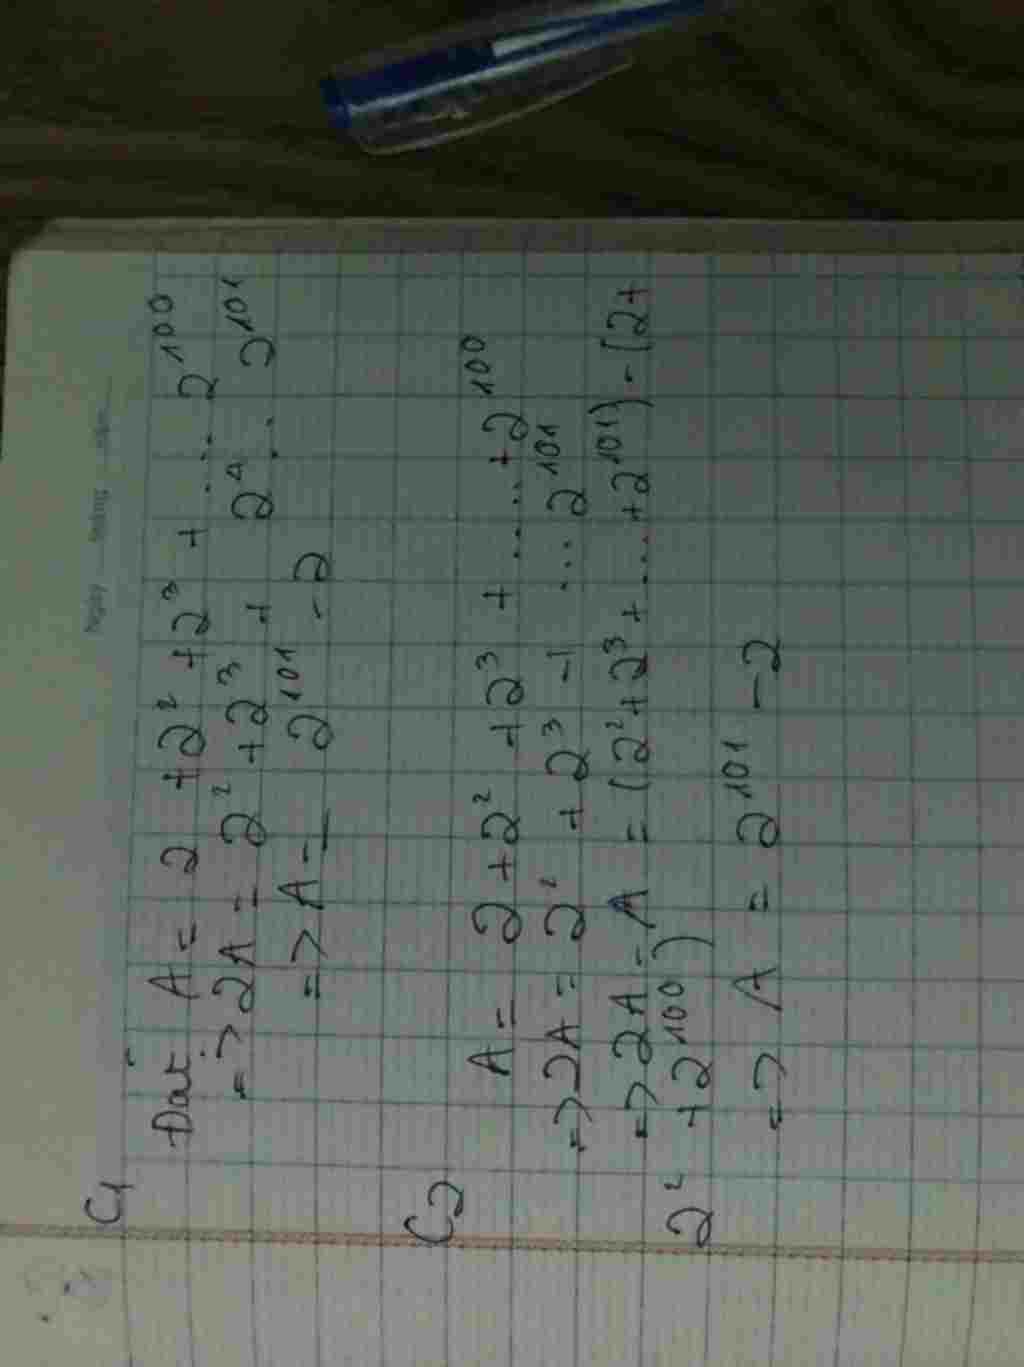 C1
Đặt A = 2 + 2² + 2³ + ... 2¹⁰⁰
=> 2A = 2² + 2³ + 2⁴ ... 2¹⁰¹
=> A = 2¹⁰¹ - 2
C2
A = 2 + 2² + 2³ + ..... + 2¹⁰⁰
=> 2A = 2² + 2³ + ... 2¹⁰¹
=> 2A - A = (2² + 2³ + ... + 2¹⁰¹) - (2 +
2² + 2¹⁰⁰)
=> A = 2¹⁰¹ - 2